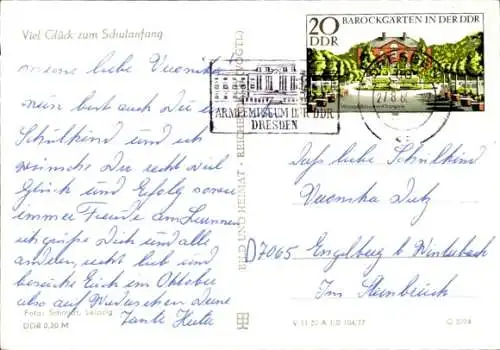 Viel Glück zum Schulanfang
meine liebe Veronika
nun bist auch Du ein
Schulkind und ich
wünsche Dir recht viel
Glück und Erfolg sowie
immer Freude am Lernen
ich grüße Dich und alle
andern, recht lieb und
besuche Euch im Oktober
also auf Wiedersehen Deine
Tante Herta
Foto: Schmidt, Leipzig
DDR 0,20 M
BILD UND HEIMAT · REICHENBACH (VOGTL)
V 11 50 A 1/B 104/77
ARMEEMUSEUM DER DDR
DRESDEN
20
DDR
BAROCKGÄRTEN IN DER DDR
liebe Schulkind
Veronika
D7065 Engelberg b Winterbach
Im Steinbrück